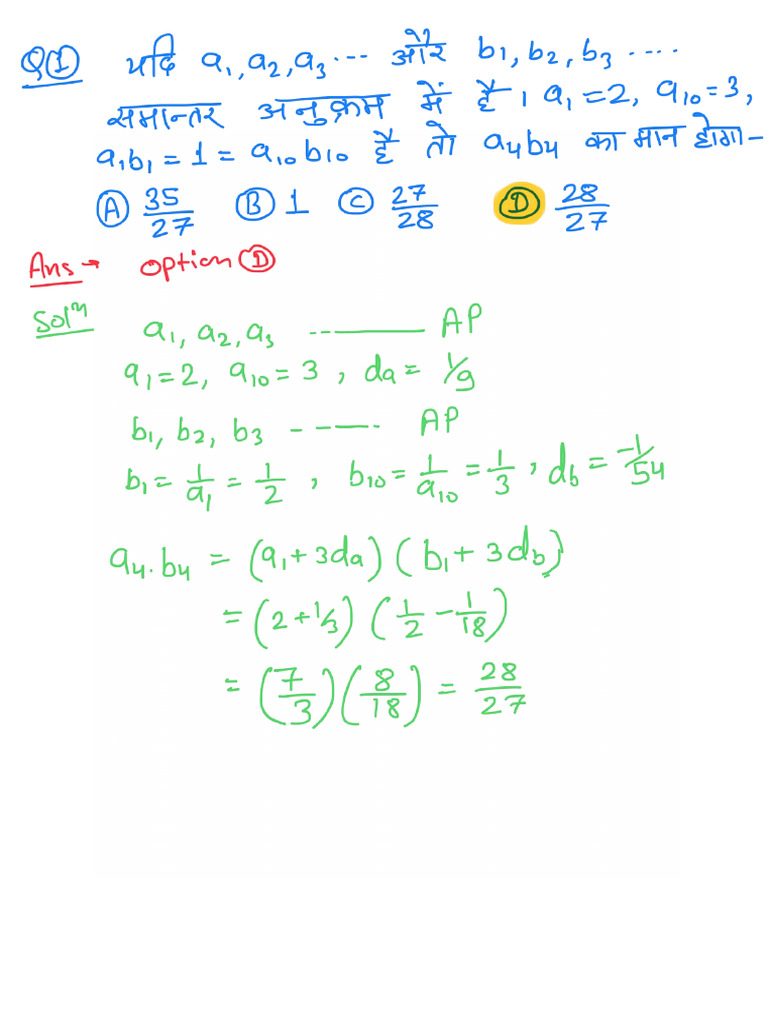 Q① यदि a₁, a₂, a₃ ... और b₁, b₂, b₃ ....
समान्तर अनुक्रम में है। a₁ = 2, a₁₀ = 3,
a₁b₁ = 1 = a₁₀b₁₀ है तो a₄b₄ का मान होगा–
Ⓐ 35/27 Ⓑ 1 Ⓒ 27/28 Ⓓ 28/27
Ans → option Ⓓ
Solⁿ
a₁, a₂, a₃ -------- AP
a₁ = 2, a₁₀ = 3, da = 1/9
b₁, b₂, b₃ ------ AP
b₁ = 1/a₁ = 1/2, b₁₀ = 1/a₁₀ = 1/3, db = -1/54
a₄.b₄ = (a₁ + 3da) (b₁ + 3db)
= (2 + 1/3) (1/2 - 1/18)
= (7/3) (8/18) = 28/27